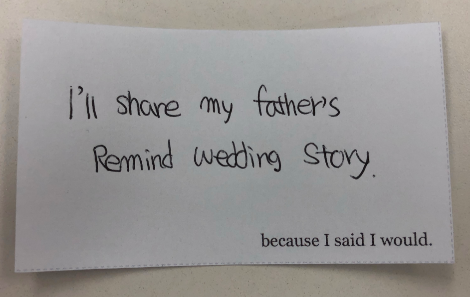 I'll share my father's
Remind wedding Story.
because I said I would.